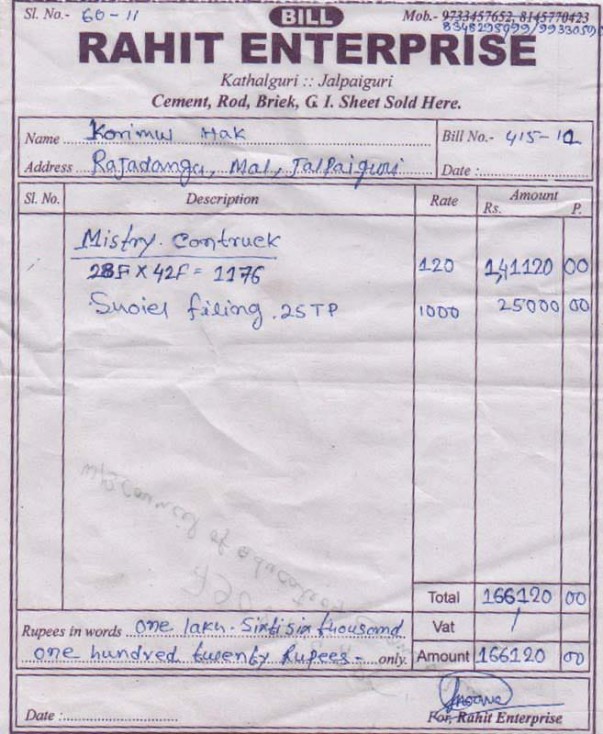 Sl. No.- 60-11
BILL
Mob.- 9733457652, 8145770423
8348295099/993305
RAHIT ENTERPRISE
Kathalguri :: Jalpaiguri
Cement, Rod, Briek, G. I. Sheet Sold Here.
Name Korimul Hak
Bill No.- 415-12
Address Rajadanga, Mal, Jalpaiguri
Date :
Sl. No. Description Rate Amount
Rs. P.
Mistry. Contruck
28F X 42F = 1176 120 1,41120 00
filing. 25TP 1000 25000 00
council of education
Total 166120 00
Rupees in words one lakh. Sixti six thousomd
Vat /
one hundred twenty Rupees - only. Amount 166120 00
Date :
For, Rahit Enterprise